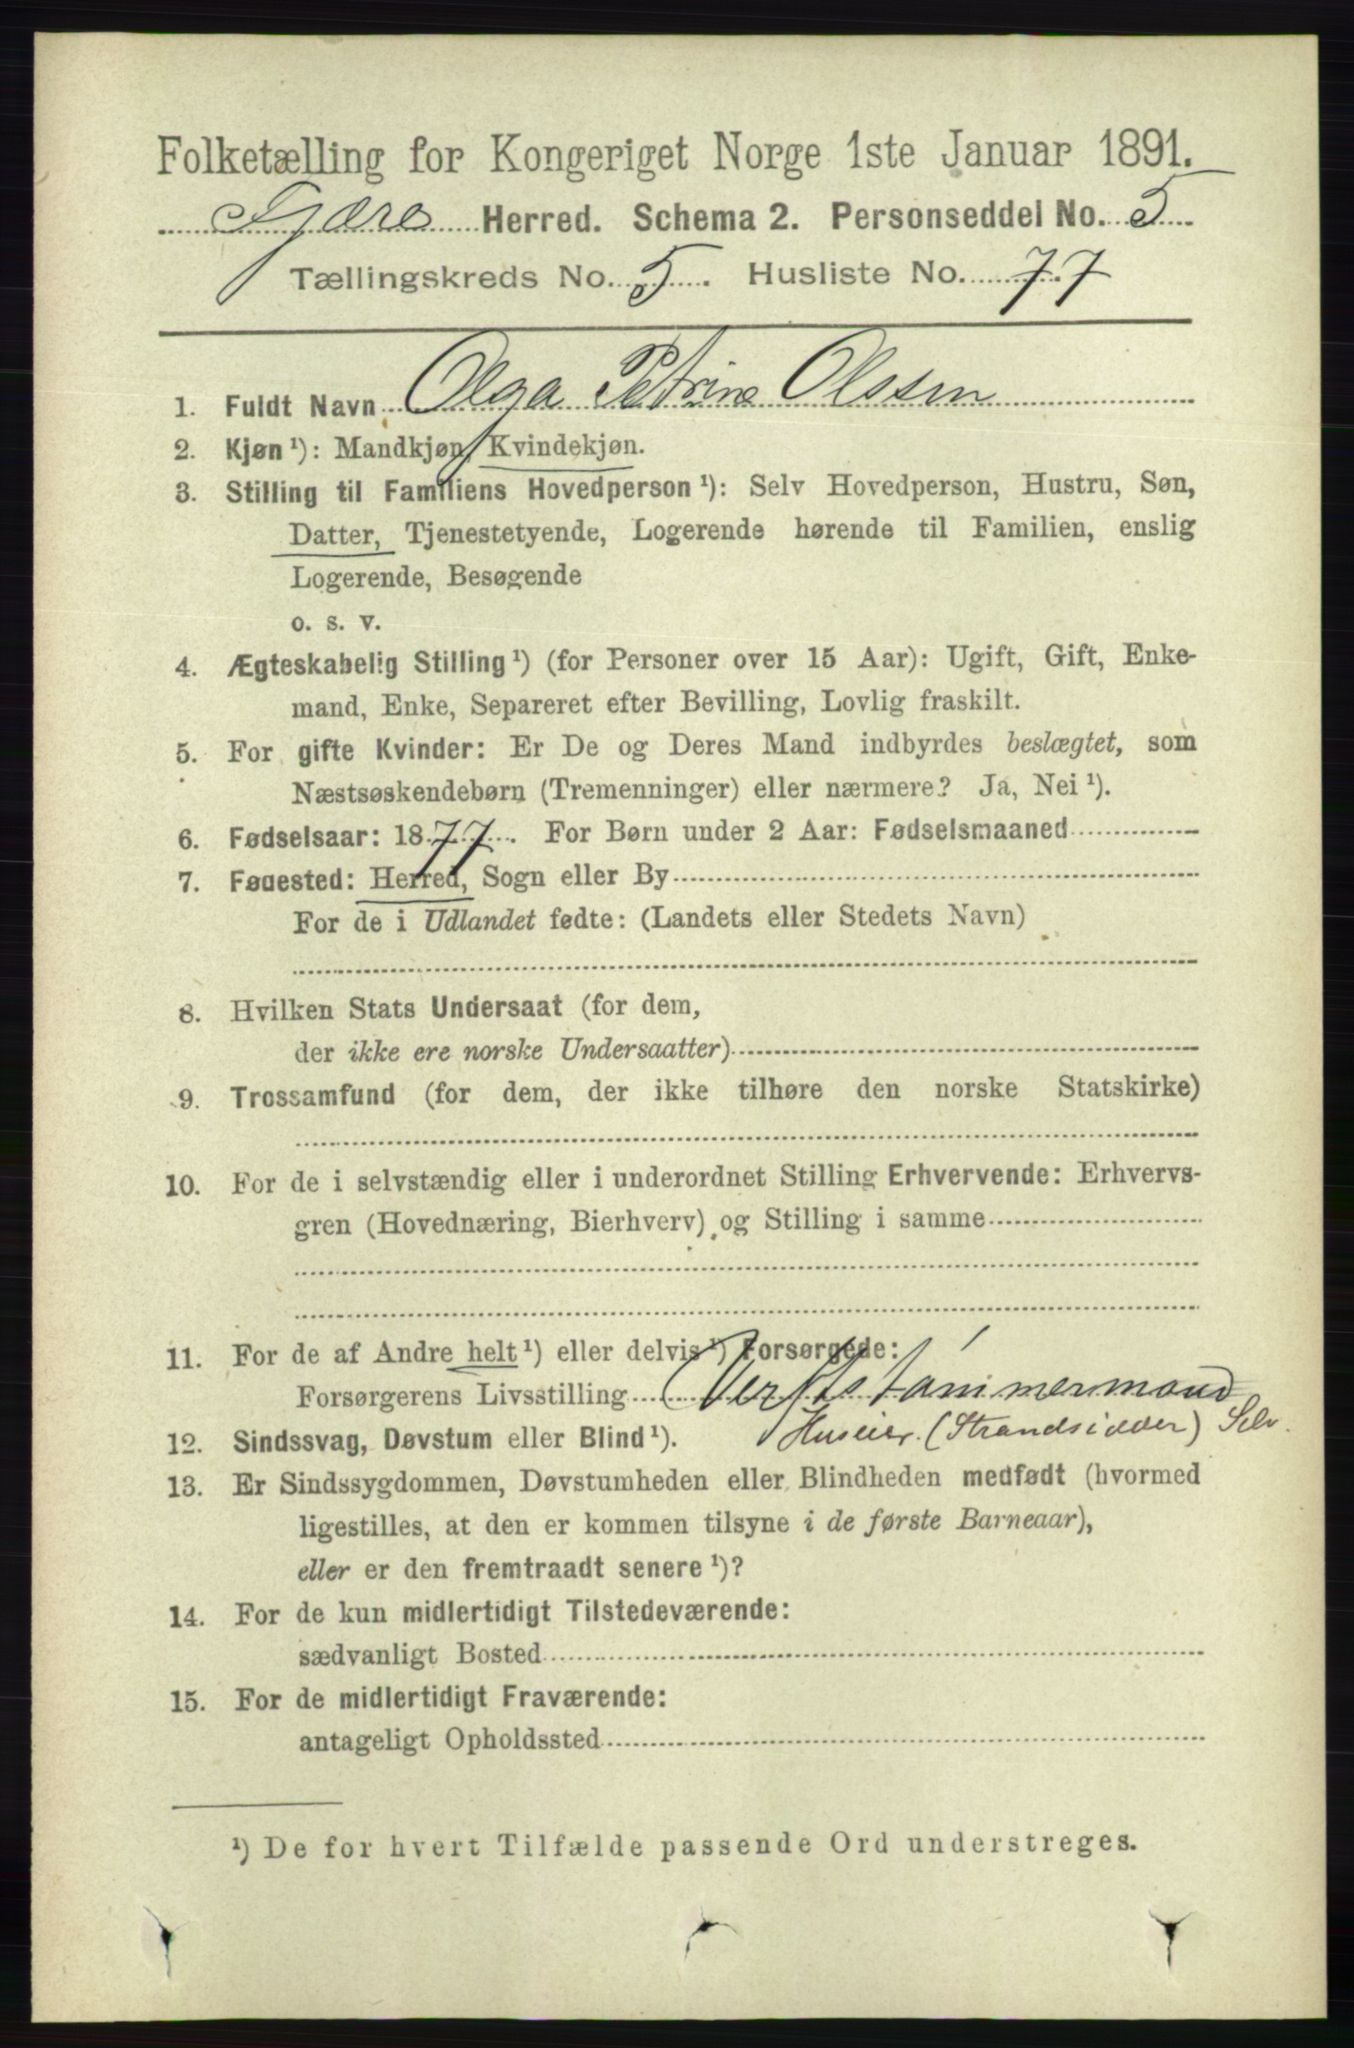 Folketælling for Kongeriget Norge 1ste Januar 1891.
Gjære Herred. Schema 2. Personseddel No. 5
Tællingskreds No. 5. Husliste No. 77
1. Fuldt Navn Olga Petrine Olssen
2. Kjøn ¹): Mandkjøn, Kvindekjøn.
3. Stilling til Familiens Hovedperson ¹): Selv Hovedperson, Hustru, Søn,
Datter, Tjenestetyende, Logerende hørende til Familien, enslig
Logerende, Besøgende
o. s. v.
4. Ægteskabelig Stilling ¹) (for Personer over 15 Aar): Ugift, Gift, Enke-
mand, Enke, Separeret efter Bevilling, Lovlig fraskilt.
5. For gifte Kvinder: Er De og Deres Mand indbyrdes beslægtet, som
Næstsøskendebørn (Tremenninger) eller nærmere? Ja, Nei ¹).
6. Fødselsaar: 1877. For Børn under 2 Aar: Fødselsmaaned
7. Fødested: Herred, Sogn eller By
For de i Udlandet fødte: (Landets eller Stedets Navn)
8. Hvilken Stats Undersaat (for dem,
der ikke ere norske Undersaatter)
9. Trossamfund (for dem, der ikke tilhøre den norske Statskirke)
10. For de i selvstændig eller i underordnet Stilling Erhvervende: Erhvervs-
gren (Hovednæring, Bierhverv) og Stilling i samme
11. For de af Andre helt ¹) eller delvis ¹) Forsørgede:
Forsørgerens Livsstilling Verftstømmermand
Huseier. (Strandsidder) Selv.
12. Sindssvag, Døvstum eller Blind ¹).
13. Er Sindssygdommen, Døvstumheden eller Blindheden medfødt (hvormed
ligestilles, at den er kommen tilsyne i de første Barneaar),
eller er den fremtraadt senere ¹)?
14. For de kun midlertidigt Tilstedeværende:
sædvanligt Bosted
15. For de midlertidigt Fraværende:
antageligt Opholdssted
¹) De for hvert Tilfælde passende Ord understreges.